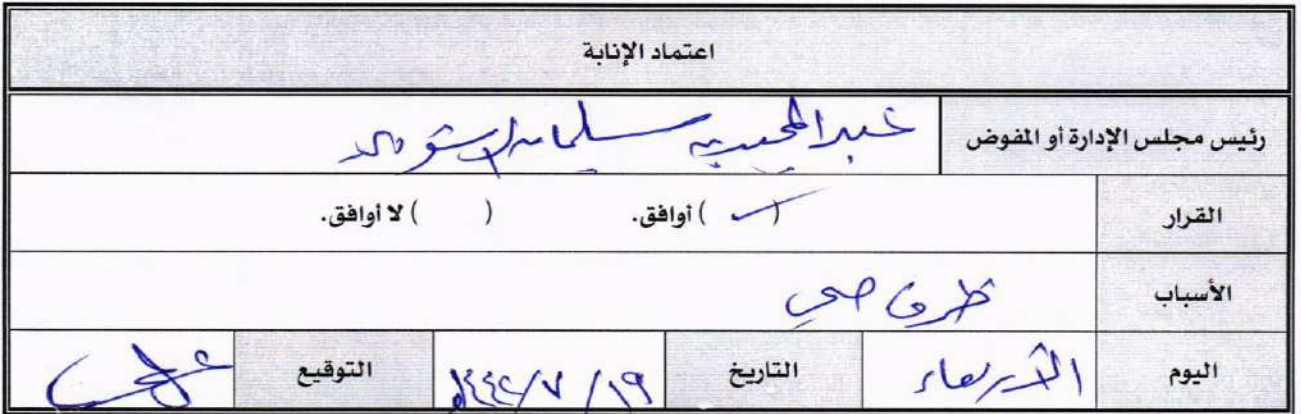 اعتماد الإنابة
رئيس مجلس الإدارة أو المفوض عبدالمحسن سليمان
القرار ( ✓ ) أوافق. ( ) لا أوافق.
الأسباب ظرف صحي
اليوم الأربعاء التاريخ ١٩/٧/١٤٤٢هـ التوقيع